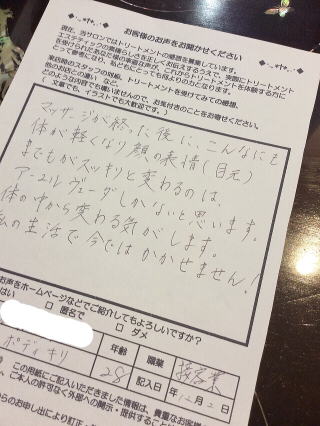 お客様のお声をお聞かせください
現在、当サロンではトリートメントの感想を募集しています。
エステティックの素晴らしさを正しくお伝えするうえで、実際にトリートメント
を受けられたあなた様の率直な声が、これからトリートメントを体験する方に
とって参考になり、私どもにとっても何よりのものとなります。
来店時のスタッフの対応、トリートメントを受けてみての感想、
他のお店との違い など
どのような内容でも構いませんので、お気付きのことをお寄せください。
(文章でも、イラストでも大歓迎です。)
マッサージが終った後に、こんなにも
体が軽くなり顔の表情(目元)
までもがスッキリと変わるのは、
アーユルヴェーダしかないと思います。
体の中から変わる気がします。
私の生活で今ではかかせません!
お声をホームページなどでご紹介してもよろしいですか?
はい □ 匿名で □ ダメ
ボディキリ
年齢 28
職業 接客業
記入日 年12月2日
この用紙にご記入いただきました情報は、貴重なお客様
ご本人の許可なく外部への開示・提供すること
からのお申し出により訂正・